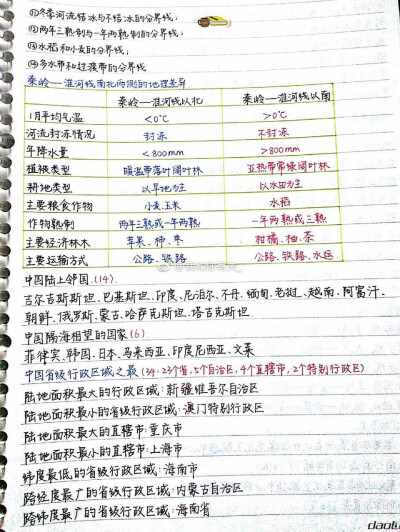 ⑪冬季河流结冰与不结冰的分界线;
⑫两年三熟制与一年两熟制的分界线;
⑬水稻和小麦的分界线;
⑭多水带和过渡带的分界线
秦岭—淮河线南北两侧的地理差异
秦岭—淮河线以北 秦岭—淮河线以南
1月平均气温 <0℃ >0℃
河流封冻情况 封冻 不封冻
年降水量 <800mm >800mm
植被类型 暖温带落叶阔叶林 亚热带常绿阔叶林
耕地类型 以旱地为主 以水田为主
主要粮食作物 小麦、玉米 水稻
作物熟制 两年三熟或一年两熟 一年两熟或三熟
主要经济林木 苹果、柿、枣 柑橘、柚、茶
主要运输方式 公路、铁路 公路、铁路、水运
中国陆上邻国.(14).
吉尔吉斯斯坦、巴基斯坦、印度、尼泊尔、不丹、缅甸、老挝、越南、阿富汗、
朝鲜、俄罗斯、蒙古、哈萨克斯坦、塔吉克斯坦.
中国隔海相望的国家(6)
菲律宾、韩国、日本、马来西亚、印度尼西亚、文莱
中国省级行政区域之最(34:23个省,5个自治区,4个直辖市,2个特别行政区)
陆地面积最大的行政区域:新疆维吾尔自治区
陆地面积最小的省级行政区域:澳门特别行政区
陆地面积最大的直辖市:重庆市
陆地面积最小的直辖市:上海市
纬度最低的省级行政区域:海南市
跨经度最广的省级行政区域:内蒙古自治区
跨纬度最广的省级行政区域:海南省
daoti